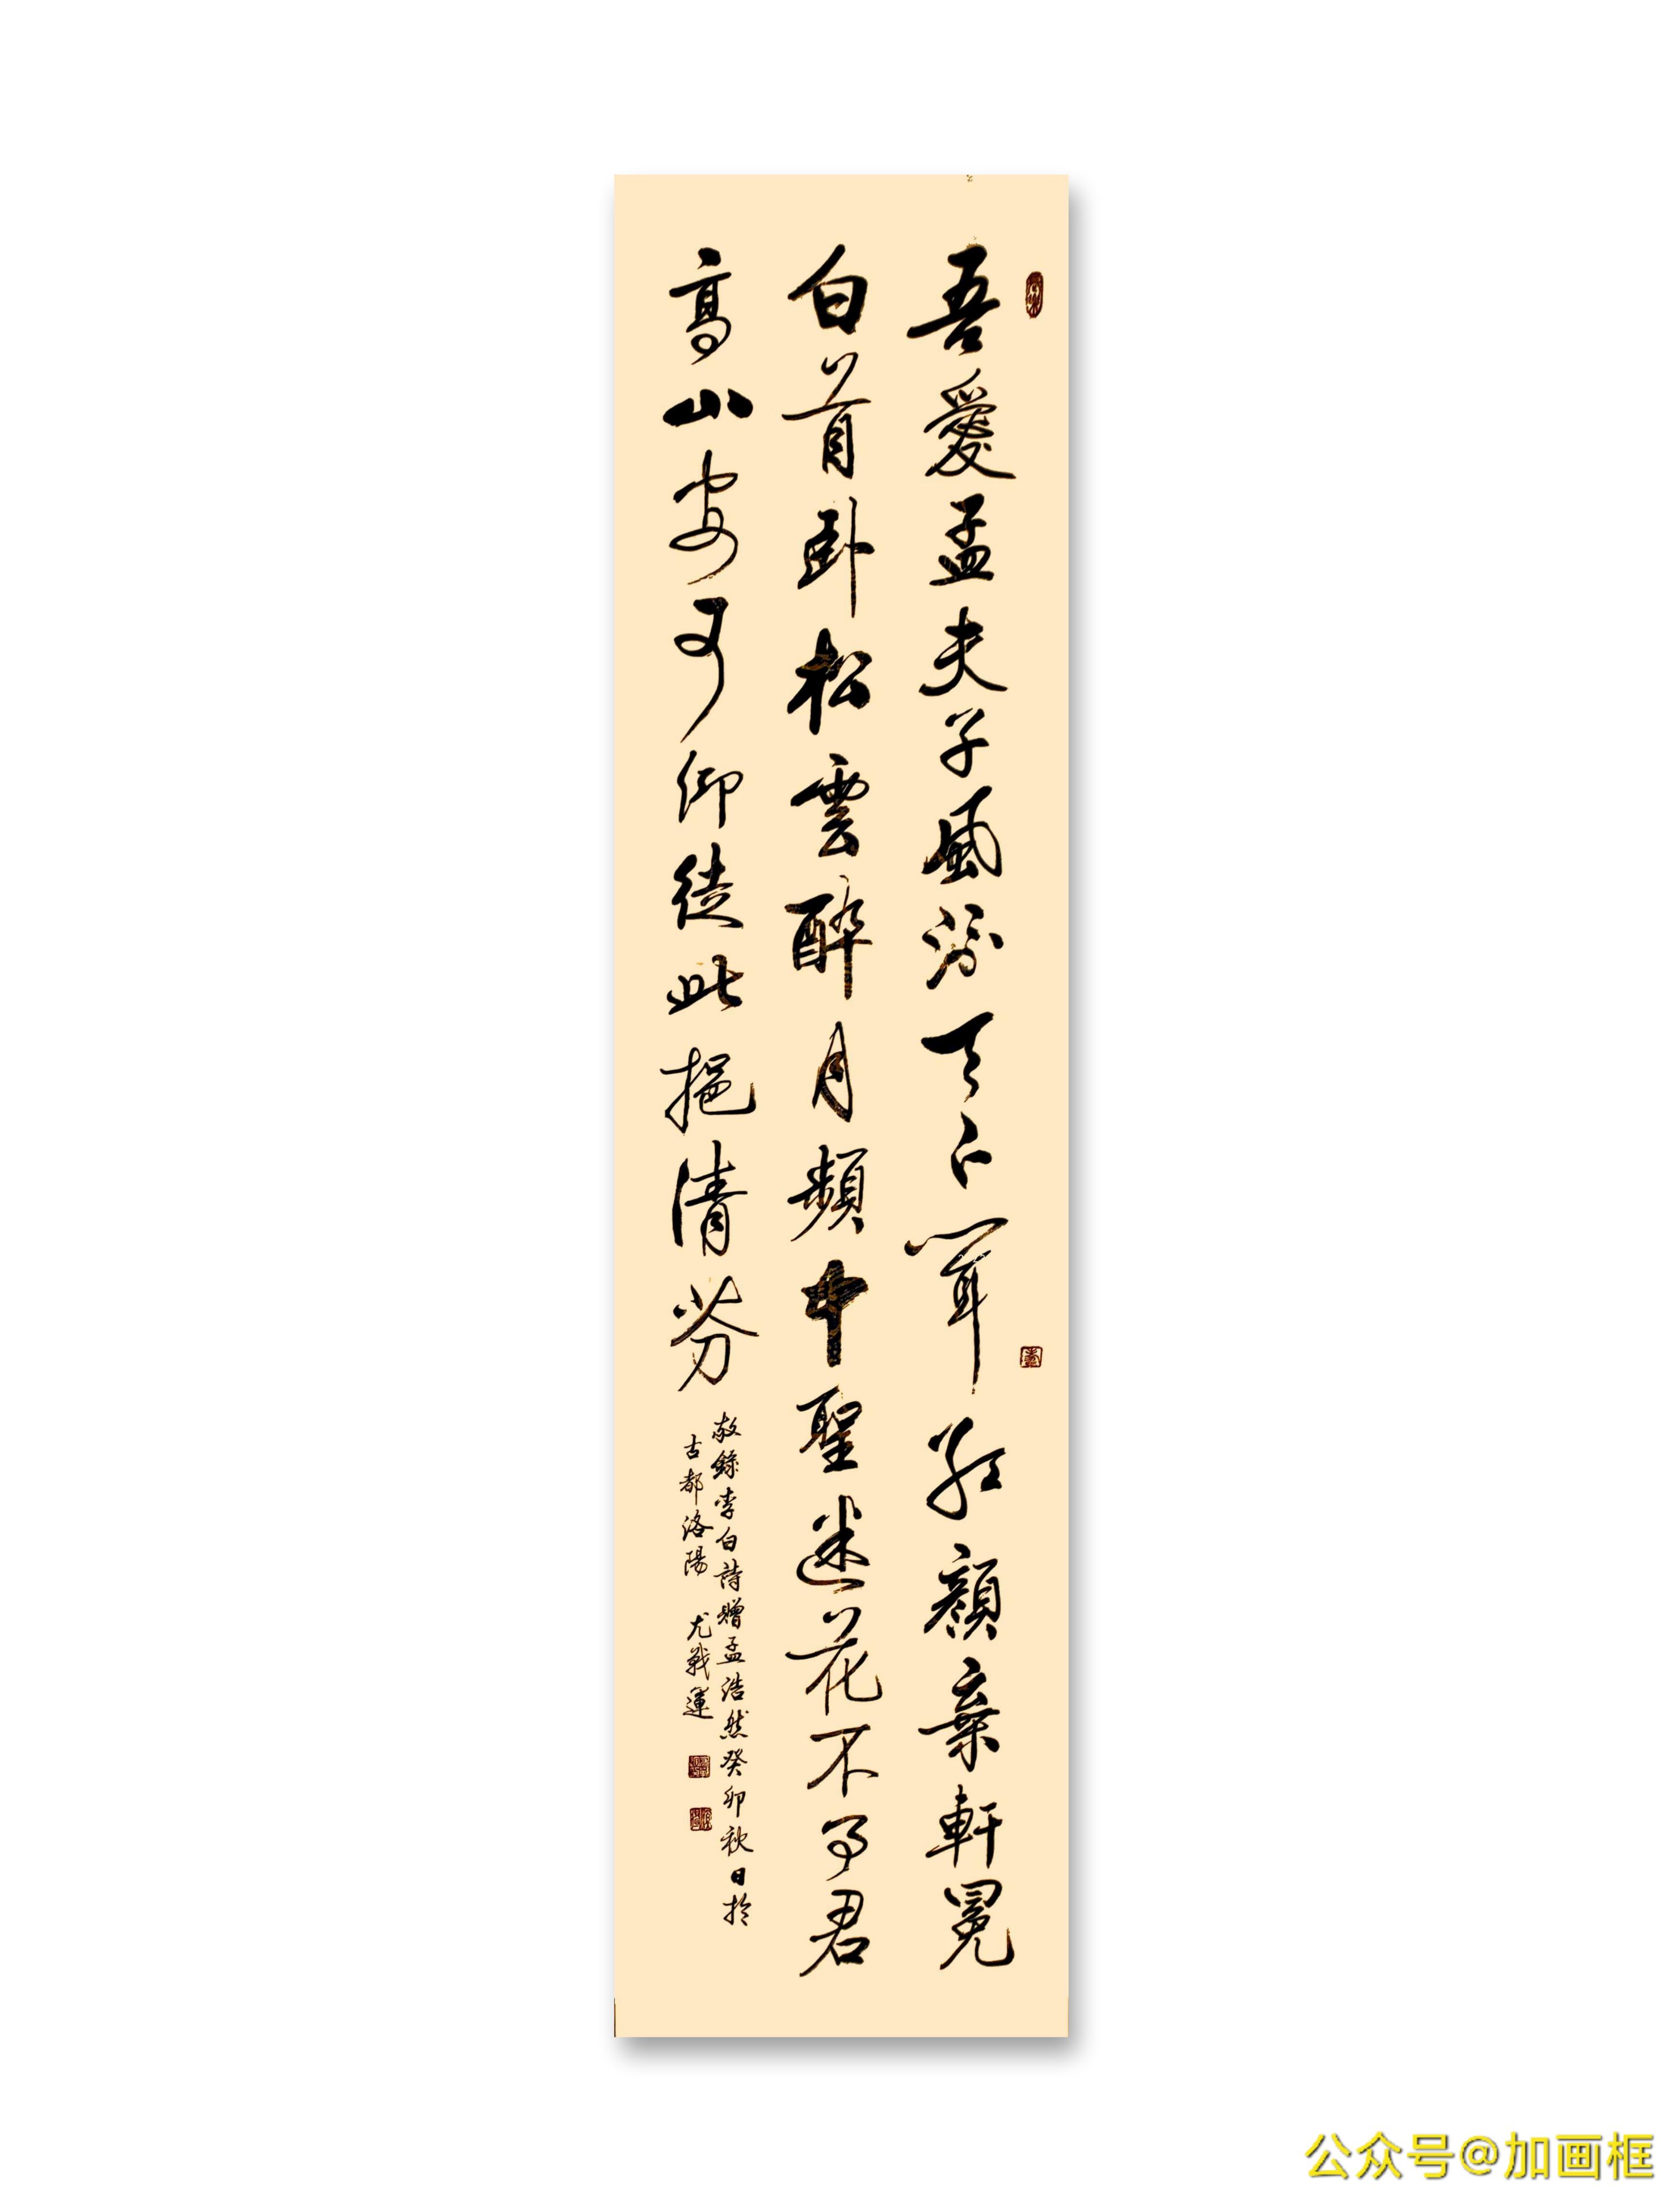 吾愛孟夫子風流天下聞紅顏棄軒冕
白首卧松雲醉月頻中聖迷花不事君
高山安可仰徒此挹清芬
敬錄李白詩贈孟浩然癸卯秋日於
古都洛陽 尤戰運
公众号@加画框